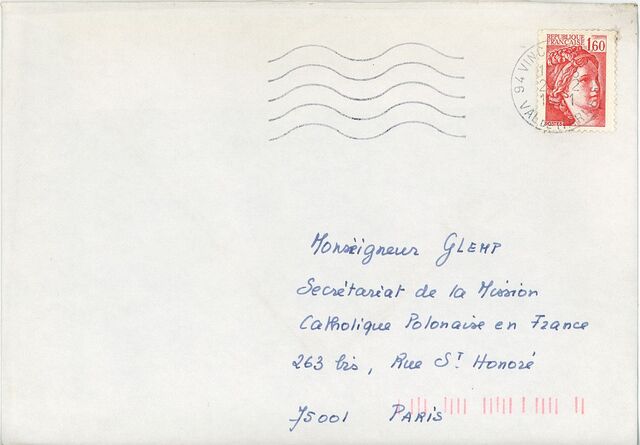 RÉPUBLIQUE
FRANÇAISE 1,60
94 VINC
VAL DE MAR
Monseigneur GLEMP
Secrétariat de la Mission
Catholique Polonaise en France
263 bis, Rue St Honoré
75001 PARIS